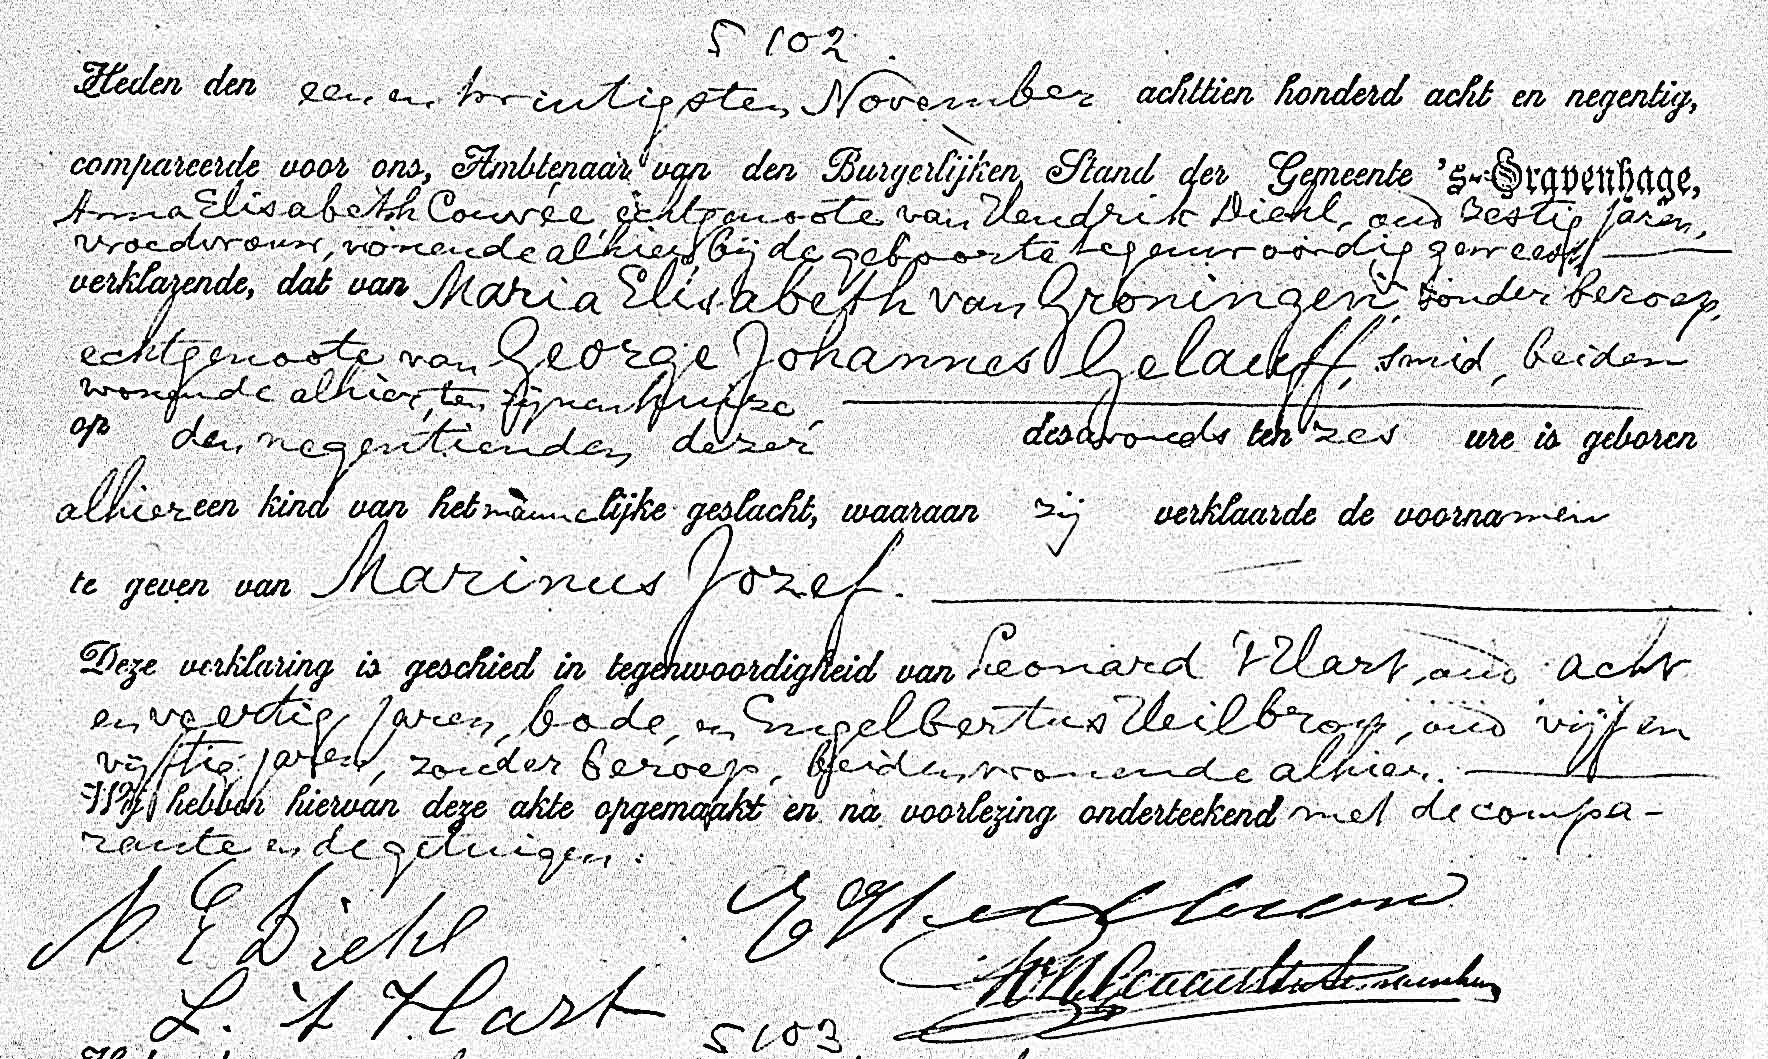 5102.
Heden den een en twintigsten November achttien honderd acht en negentig,
compareerde voor ons, Ambtenaar van den Burgerlijken Stand der Gemeente 's-Gravenhage,
Anna Elisabeth Couvée, echtgenoote van Hendrik Diehl, oud zestig jaren,
vroedvrouw, wonende alhier, bij de geboorte tegenwoordig geweest
verklarende, dat van Maria Elisabeth van Groningen, zonder beroep,
echtgenoote van George Johannes Gelauff, smid, beiden
wonende alhier, ten zijnen huize
op den negentienden dezer des avonds ten zes ure is geboren
alhier een kind van het mannelijke geslacht, waaraan zij verklaarde de voornamen
te geven van Marinus Jozef.
Deze verklaring is geschied in tegenwoordigheid van Leonard 't Hart, oud acht
en veertig jaren, bode, en Engelbertus Heilbrop, oud vijf en
vijftig jaren, zonder beroep, beiden wonende alhier.
Wij hebben hiervan deze akte opgemaakt en na voorlezing onderteekend met de compa-
rante en de getuigen.
A E Diehl
L. 't Hart
5103